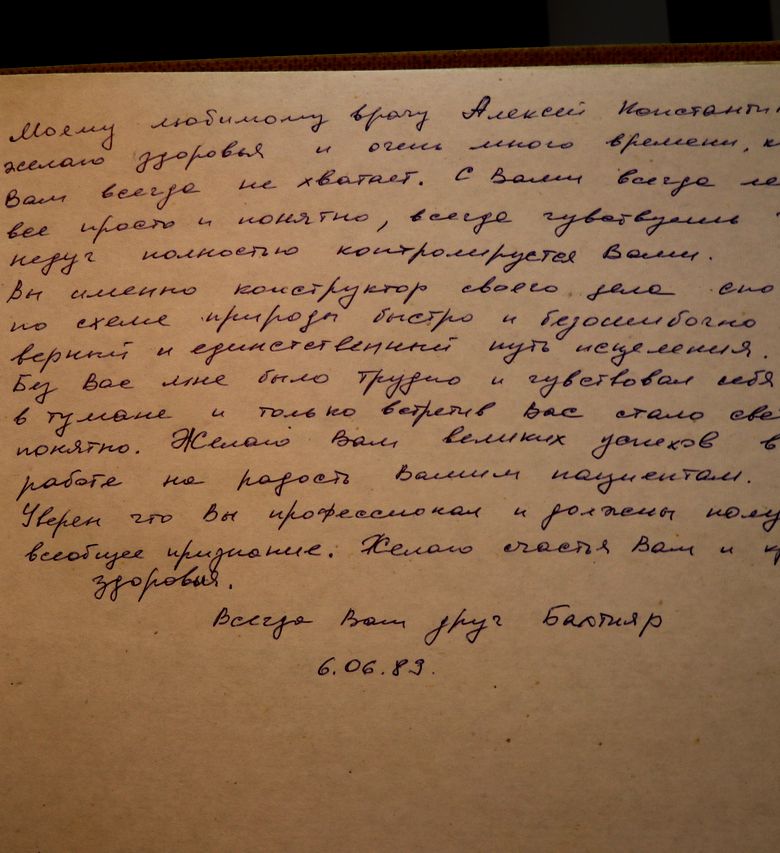 Моему любимому врачу Алексей Константи
желаю здоровья и очень много времени, к
Вам всегда не хватает. С Вами всегда ле
все просто и понятно, всегда чувствуешь
недуг полностью контролируется Вами.
Вы именно конструктор своего дела спо
по схеме природы быстро и безошибочно
верный и единственный путь исцеления.
Без Вас мне было трудно и чувствовал себя
в тумане и только встретив Вас стало све
понятно. Желаю Вам великих успехов в
работе на радость Вашим пациентам.
Уверен что Вы профессионал и должны полу
всеобщее признание. Желаю счастья Вам и кр
здоровья.
Всегда Ваш друг Бахтияр
6.06.89.